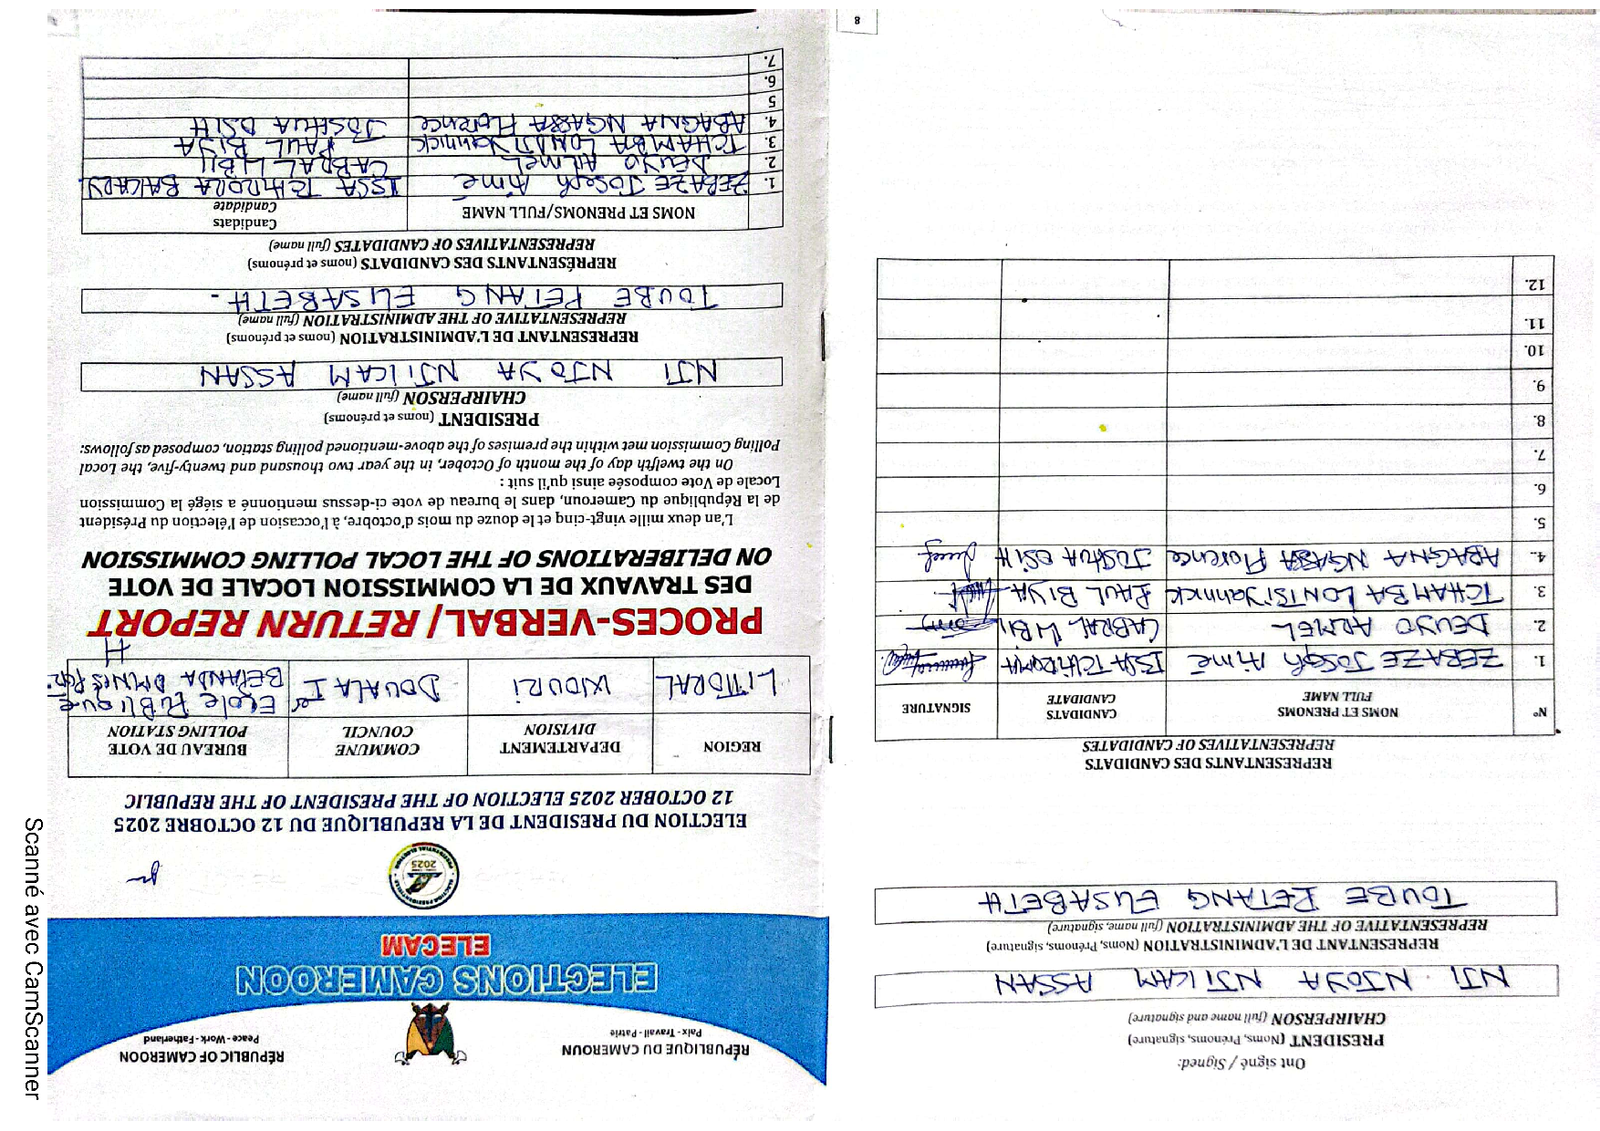 RÉPUBLIQUE DU CAMEROUN
Paix - Travail - Patrie
RÉPUBLIC OF CAMEROON
Peace - Work - Fatherland
ELECTIONS CAMEROON
ELECAM
2025
ELECTION DU PRESIDENT DE LA REPUBLIQUE DU 12 OCTOBRE 2025
12 OCTOBER 2025 ELECTION OF THE PRESIDENT OF THE REPUBLIC
REGION DEPARTEMENT DIVISION COMMUNE COUNCIL BUREAU DE VOTE POLLING STATION
LITTORAL WOURI DOUALA Ier ECOLE PUBLIQUE
BEPANDA OMNISPORT
H
PROCES-VERBAL/ RETURN REPORT
DES TRAVAUX DE LA COMMISSION LOCALE DE VOTE
ON DELIBERATIONS OF THE LOCAL POLLING COMMISSION
L'an deux mille vingt-cinq et le douze du mois d'octobre, à l'occasion de l'élection du Président
de la République du Cameroun, dans le bureau de vote ci-dessus mentionné a siégé la Commission
Locale de Vote composée ainsi qu'il suit :
On the twelfth day of the month of October, in the year two thousand and twenty-five, the Local
Polling Commission met within the premises of the above-mentioned polling station, composed as follows:
PRESIDENT (noms et prénoms)
CHAIRPERSON (full name)
NJI NJOYA NJIKAM ASSAN
REPRESENTANT DE L'ADMINISTRATION (noms et prénoms)
REPRESENTATIVE OF THE ADMINISTRATION (full name)
TOUBE PETANG ELISABETH -
REPRÉSENTANTS DES CANDIDATS (noms et prénoms)
REPRESENTATIVES OF CANDIDATES (full name)
NOMS ET PRENOMS/FULL NAME Candidats Candidate
1. ZEBAZE JOSEPH Aimé ISSA TCHIROMA BAKARY
2. DEUYO ARMEL CABRAL LIBII
3. TCHAMBA LONTSI Yannick PAUL BIYA
4. ABAGNA NGASSA Florence JOSHUA OSIH
5
6.
7.
8
Ont signé / Signed:
PRESIDENT (Noms, Prénoms, signature)
CHAIRPERSON (full name and signature)
NJI NJOYA NJIKAM ASSAN
REPRESENTANT DE L'ADMINISTRATION (Noms, Prénoms, signature)
REPRESENTATIVE OF THE ADMINISTRATION (full name, signature)
TOUBE PETANG ELISABETH
REPRESENTANTS DES CANDIDATS
REPRESENTATIVES OF CANDIDATES
N° NOMS ET PRENOMS FULL NAME CANDIDATS CANDIDATE SIGNATURE
1. ZEBAZE JOSEPH Aimé ISSA TCHIROMA
2. DEUYO ARMEL CABRAL LIBII
3. TCHAMBA LONTSI Yannick PAUL BIYA
4. ABAGNA NGASSA Florence JOSHUA OSIH
5.
6.
7.
8
9.
10.
11.
12.
Scanné avec CamScanner